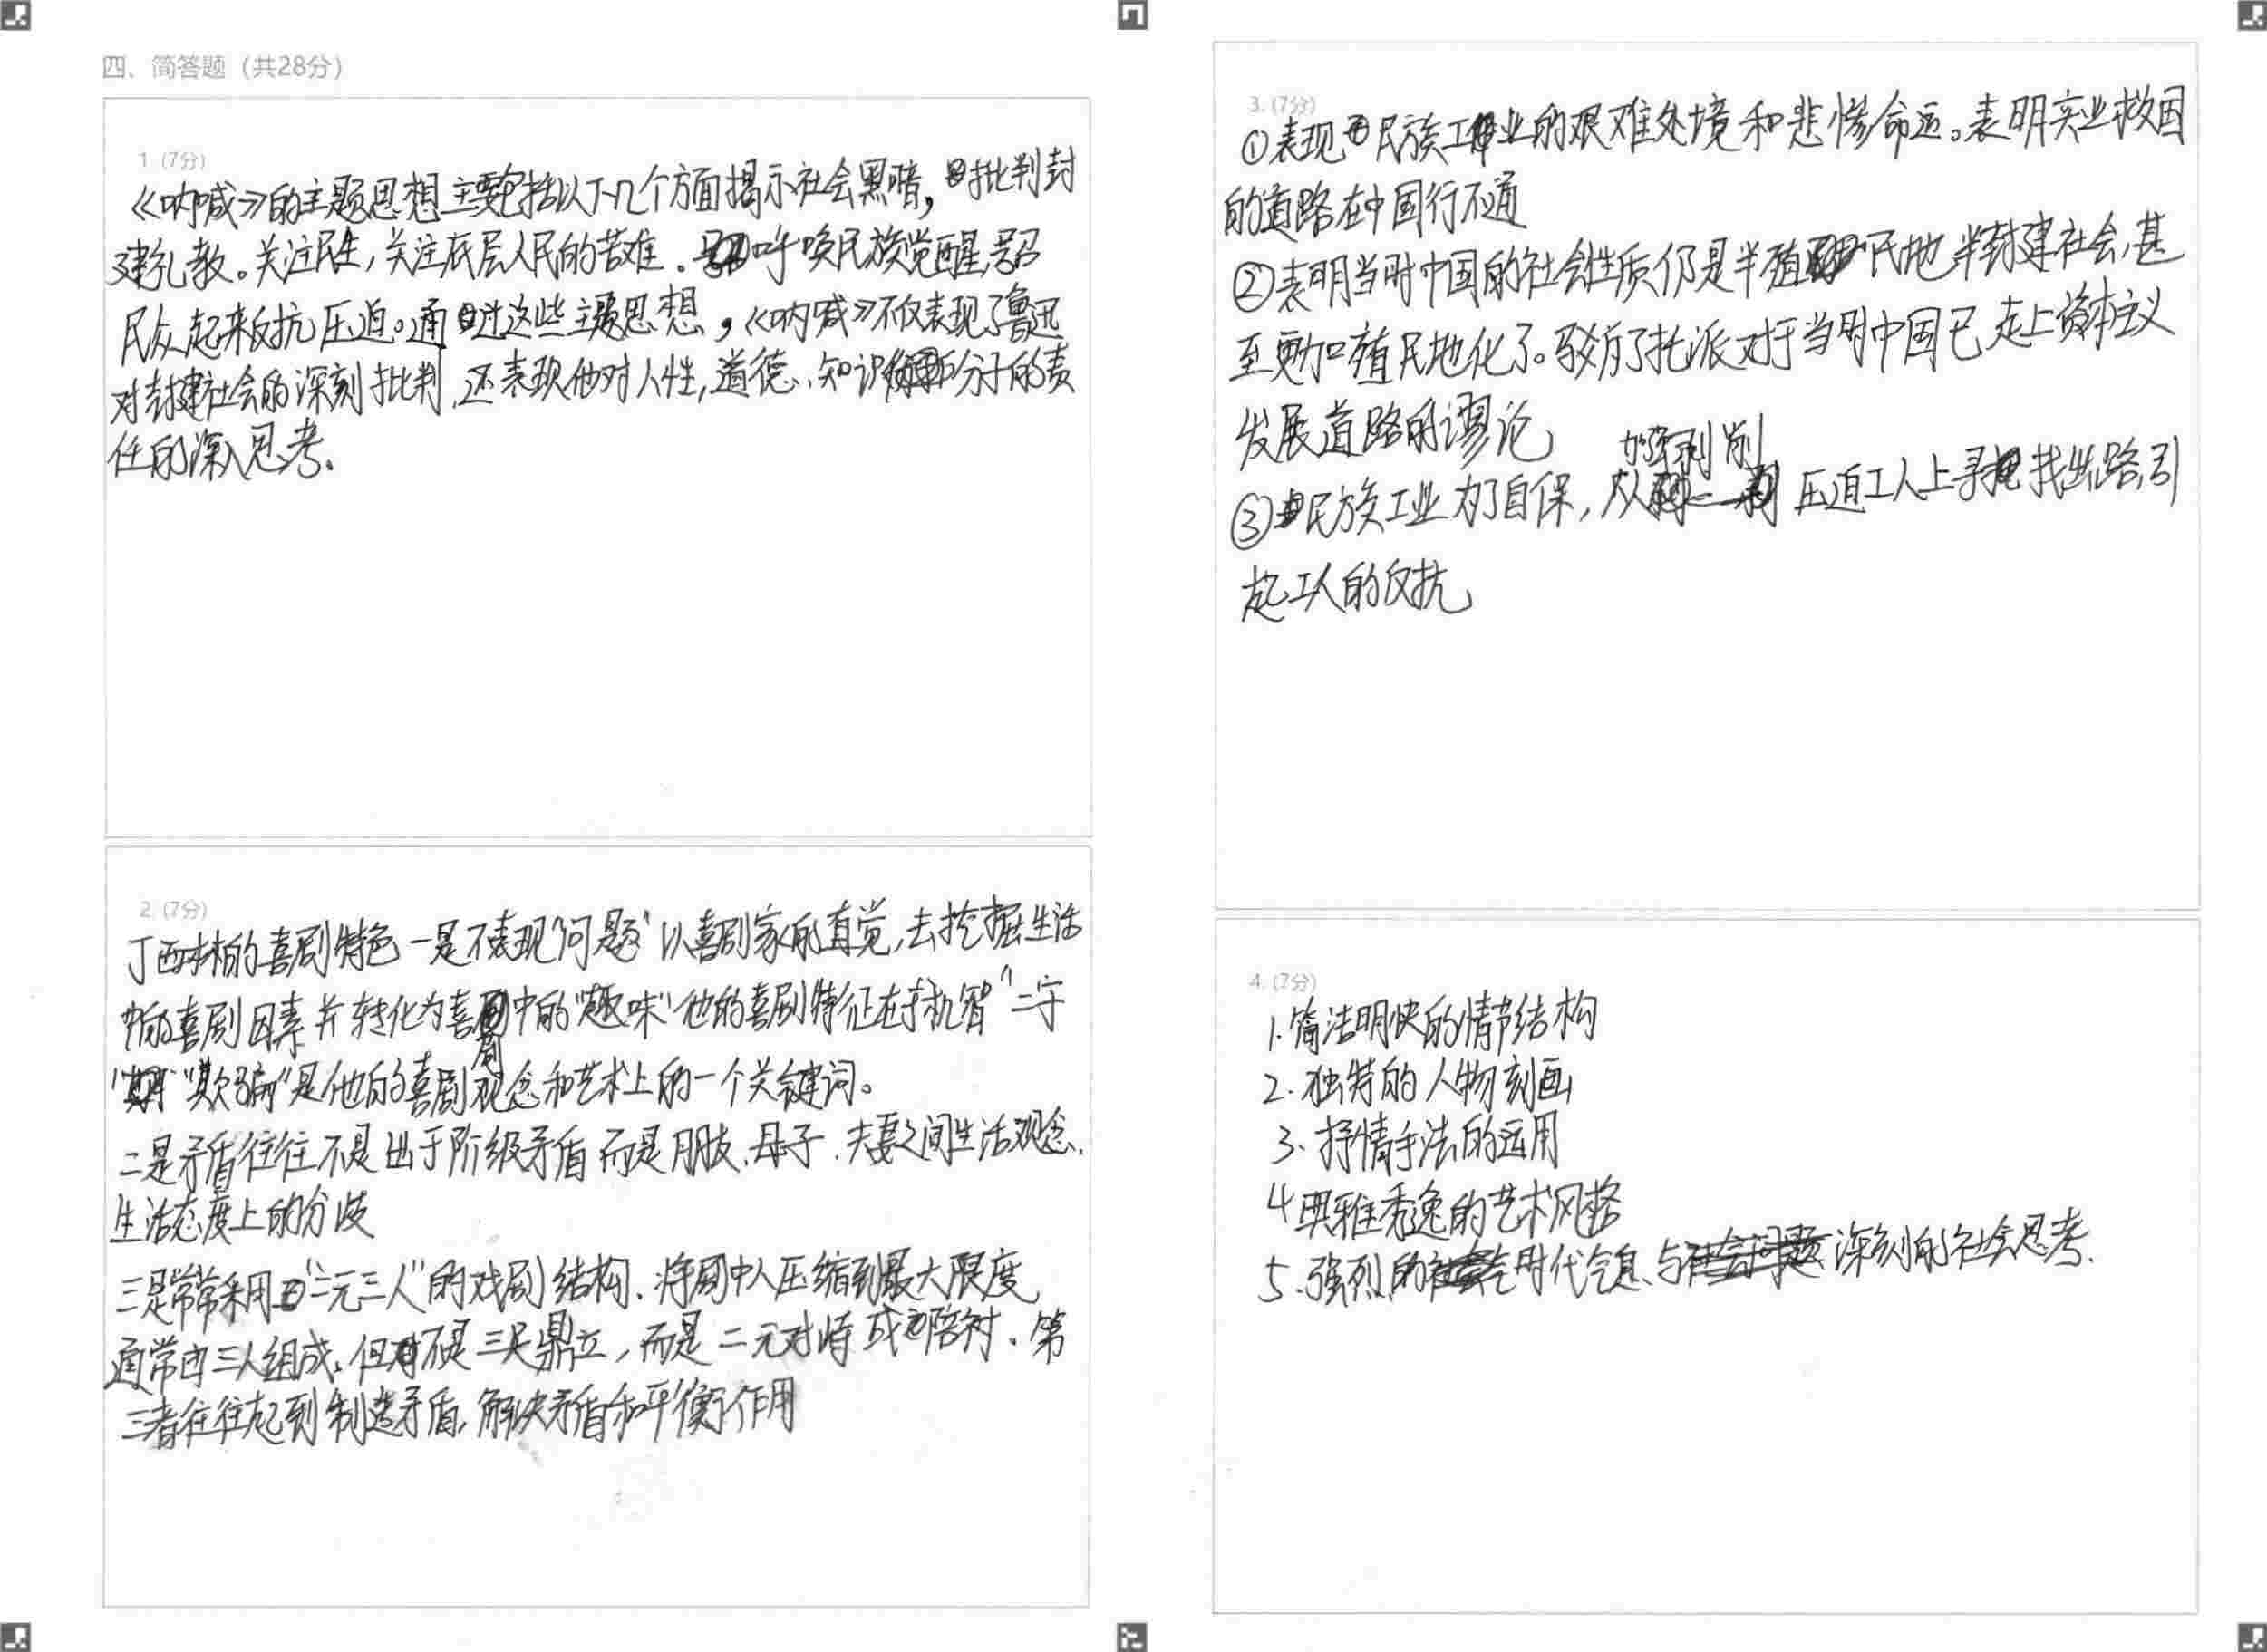 四、简答题（共28分）
1. (7分)
《呐喊》的主题思想主要包括以下几个方面揭示社会黑暗，批判封
建礼教。关注民生，关注底层人民的苦难。呼唤民族觉醒，号召
民众起来反抗压迫。通过这些主题思想，《呐喊》不仅表现了鲁迅
对封建社会的深刻批判，还表现他对人性，道德、知识分子的责
任的深入思考。
2. (7分)
丁西林的喜剧特色一是不表现"问题"以喜剧家的直觉，去挖掘生活
中的喜剧因素并转化为喜剧中的"趣味"他的喜剧特征在于"机智"二字
"欺骗"是他的喜剧观念和艺术上的一个关键词。
二是矛盾往往不是出于阶级矛盾而是朋友、母子、夫妻之间生活观念、
生活态度上的分歧
三是常常采用"二元三人"的戏剧结构．将剧中人压缩到最大限度
通常由三人组成，但不是三足鼎立，而是二元对峙或陪衬。第
三者往往起到制造矛盾，解决矛盾和平衡作用
3. (7分)
①表现民族工业的艰难处境和悲惨命运。表明实业救国
的道路在中国行不通
②表明当时中国的社会性质仍是半殖民地半封建社会，甚
至更加殖民地化了。驳斥了托派对于当时中国已走上资本主义
发展道路的谬论
③民族工业为了自保，从加强剥削压迫工人上寻找出路，引
起工人的反抗
4. (7分)
1.简洁明快的情节结构
2.独特的人物刻画
3、抒情手法的运用
4典雅秀逸的艺术风格
5.强烈的时代气息、与深刻的社会思考．